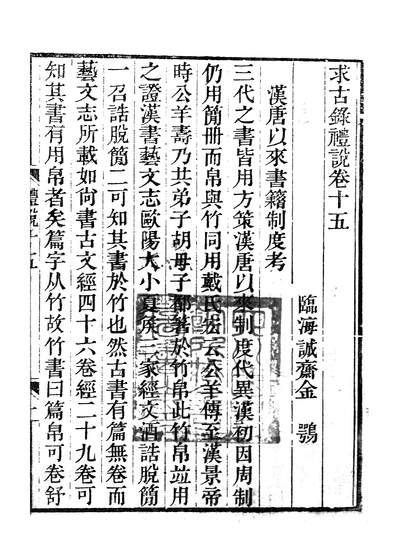 求古錄禮說卷十五
臨海誠齋金鶚
漢唐以來書籍制度考
三代之書皆用方策漢唐以來制度代異漢初因周制
仍用簡冊而帛與竹同用戴氏宏云公羊傳至漢景帝
時公羊壽乃共弟子胡母子都著於竹帛此竹帛竝用
之證漢書藝文志歐陽大小夏侯三家經文酒誥脫簡
一召誥脫簡二可知其書於竹也然古書有篇無卷而
藝文志所載如尙書古文經四十六卷經二十九卷可
知其書有用帛者矣篇字从竹故竹書曰篇帛可卷舒
禮說十五
一